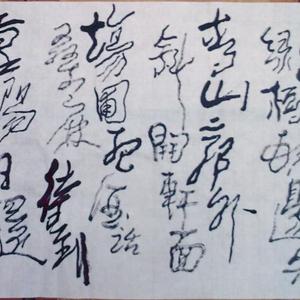 緑樹村邊合
青山郭外
斜開軒面
場圃把酒話
桑麻待到
重陽日還